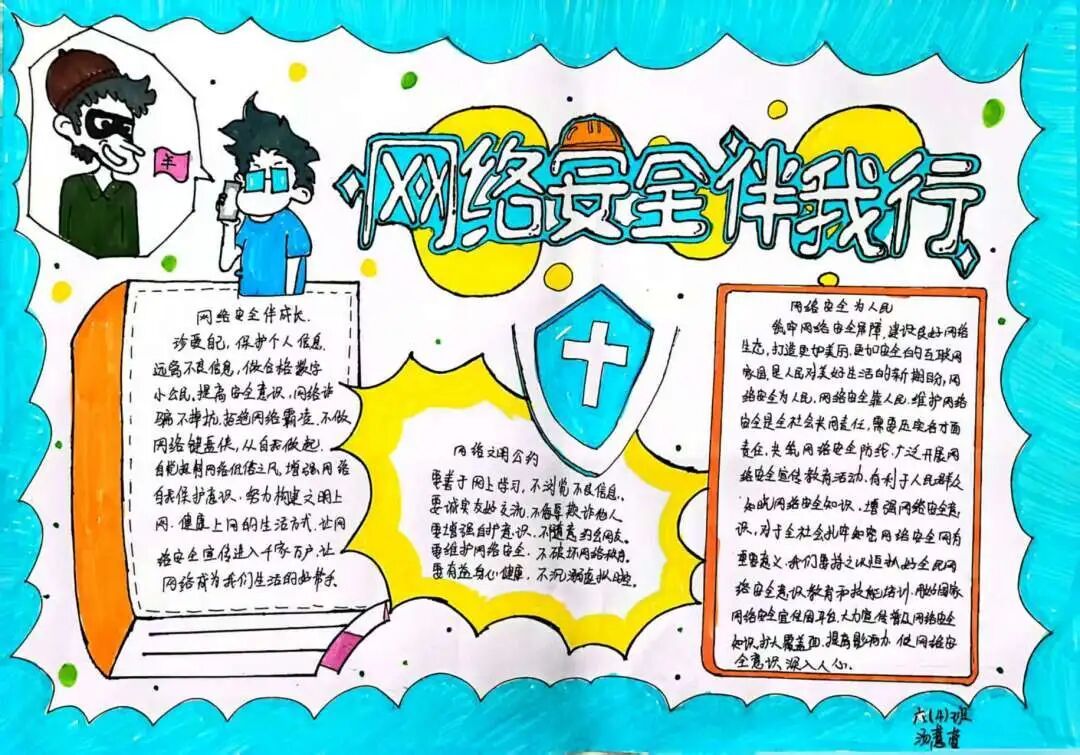 网络安全伴我行
羊
网络安全伴成长.
珍爱自己,保护个人信息
远离不良信息,做合格数字
小公民,提高安全意识,网络诈
骗不单抗,拒绝网络霸凌.不做
网络键盘侠,从自我做起.
自觉抵制网络低俗之风,增强网络
自我保护意识.努力构建文明上
网.健康上网的生活方式.让网
络安全宣传进入千家万户,让
网络成为我们生活的好帮手.
网络文明公约
要善于网上学习,不浏览不良信息.
要诚实友好交流,不侮辱欺诈他人
要增强自护意识.不随意约会网友.
要维护网络安全.不破坏网络秩序.
要有益身心健康,不沉溺虚拟时空.
网络安全为人民
筑牢网络安全屏障,建设良好网络
生态,打造更加美丽.更加安全的互联网
家园.是人民对美好生活的新期盼,网
络安全为人民,网络安全靠人民.维护网络
安全是全社会共同责任,需要压实各方面
责任.共筑网络安全防线.广泛开展网
络安全宣传教育活动.有利于人民群众
知晓网络安全知识.增强网络安全意
识,对于全社会扎牢织密网络安全网有
重要意义.我们要持之以恒抓好全民网
络安全意识教育和技能培训.用好国家
网络安全宣传周平台.大力宣传普及网络安全
知识,扩大覆盖面.提高影响力.使网络安
全意识深入人心.
六(4)班
汤